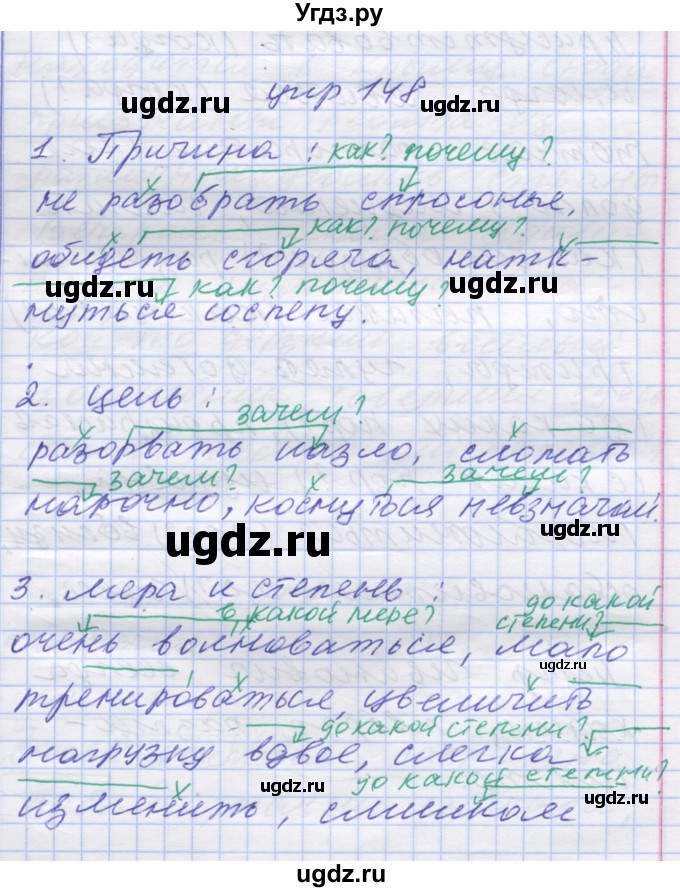 Угдз.ру
упр 148
1. Причина : как? почему?
не разобрать спросонья,
как? почему?
обидеть сгоряча, натк-
как? почему?
нуться сослепу.
2. Цель :
зачем?
разорвать назло, сломать
зачем? зачем?
нарочно, коснуться невзначай.
3. Мера и степень :
в какой мере? до какой степени?
очень волноваться, мало
тренироваться, увеличить
до какой степени?
нагрузку вдвое, слегка
до какой степени?
изменить, слишком
ugdz.ru
ugdz.ru
ugdz.ru
ugdz.ru
ugdz.ru
ugdz.ru
ugdz.ru
ugdz.ru
ugdz.ru
ugdz.ru
ugdz.ru
ugdz.ru
ugdz.ru